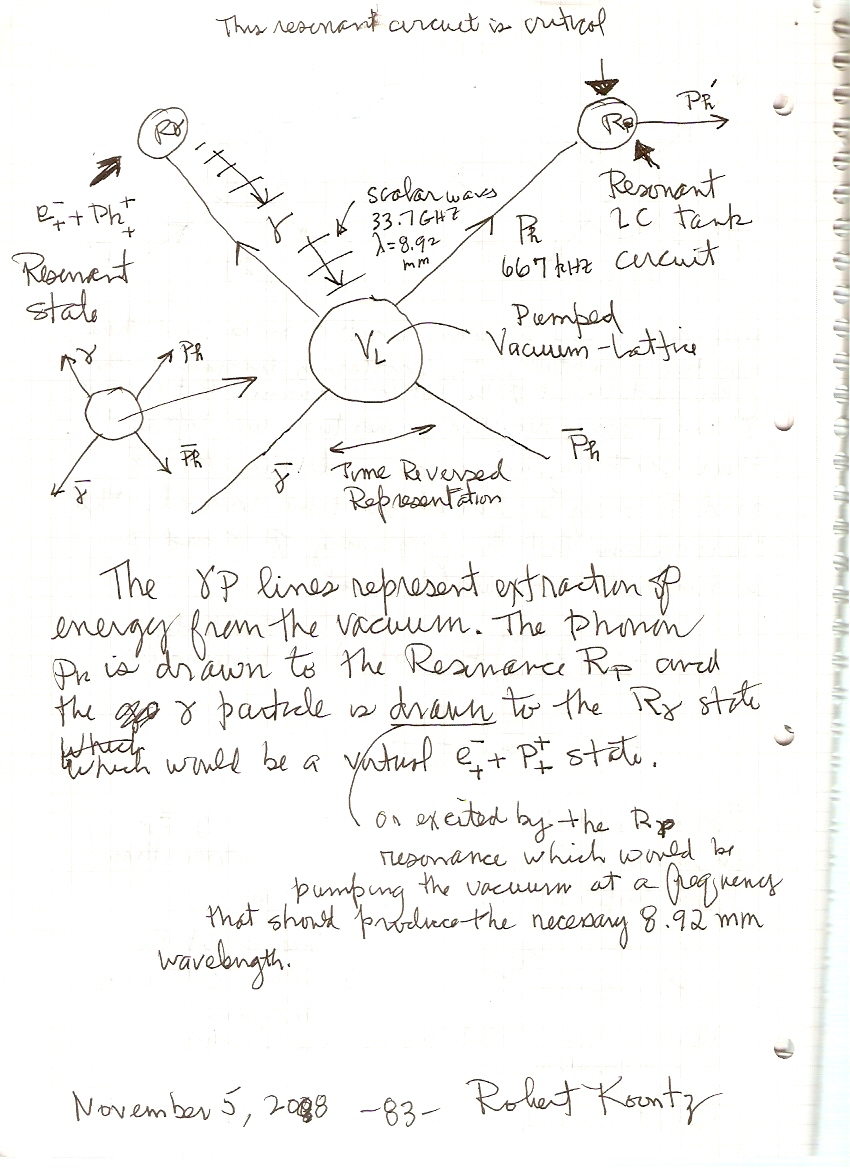 This resonant circuit is critical
Rγ
RP
Ph'
e⁻₊ + Ph⁺₊
Resonant
state
γ
scalar wave
33.7 GHz
λ=8.92
mm
Ph
667 kHz
Resonant
LC tank
circuit
VL
Pumped
Vacuum-Lattice
γ
Ph
γ̄
P̄h
γ̄
Time Reversed
Representation
P̄h
The γP lines represent extraction of
energy from the vacuum. The phonon
Ph is drawn to the Resonance RP and
the γ particle is drawn to the Rγ state
which
which would be a virtual e⁻₊ + P⁺₊ state.
or excited by the RP
resonance which would be
pumping the vacuum at a frequency
that should produce the necessary 8.92 mm
wavelength.
November 5, 2008 -83- Robert Koontz